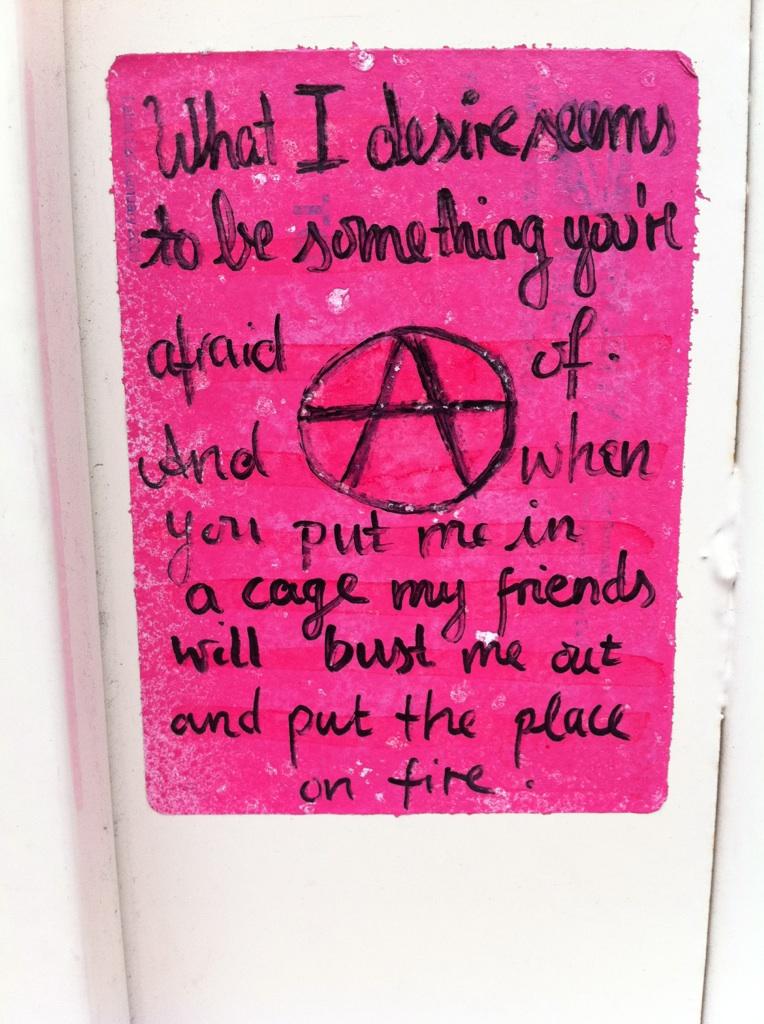 What I desire seems
to be something you're
afraid of.
And when
you put me in
a cage my friends
will bust me out
and put the place
on fire.